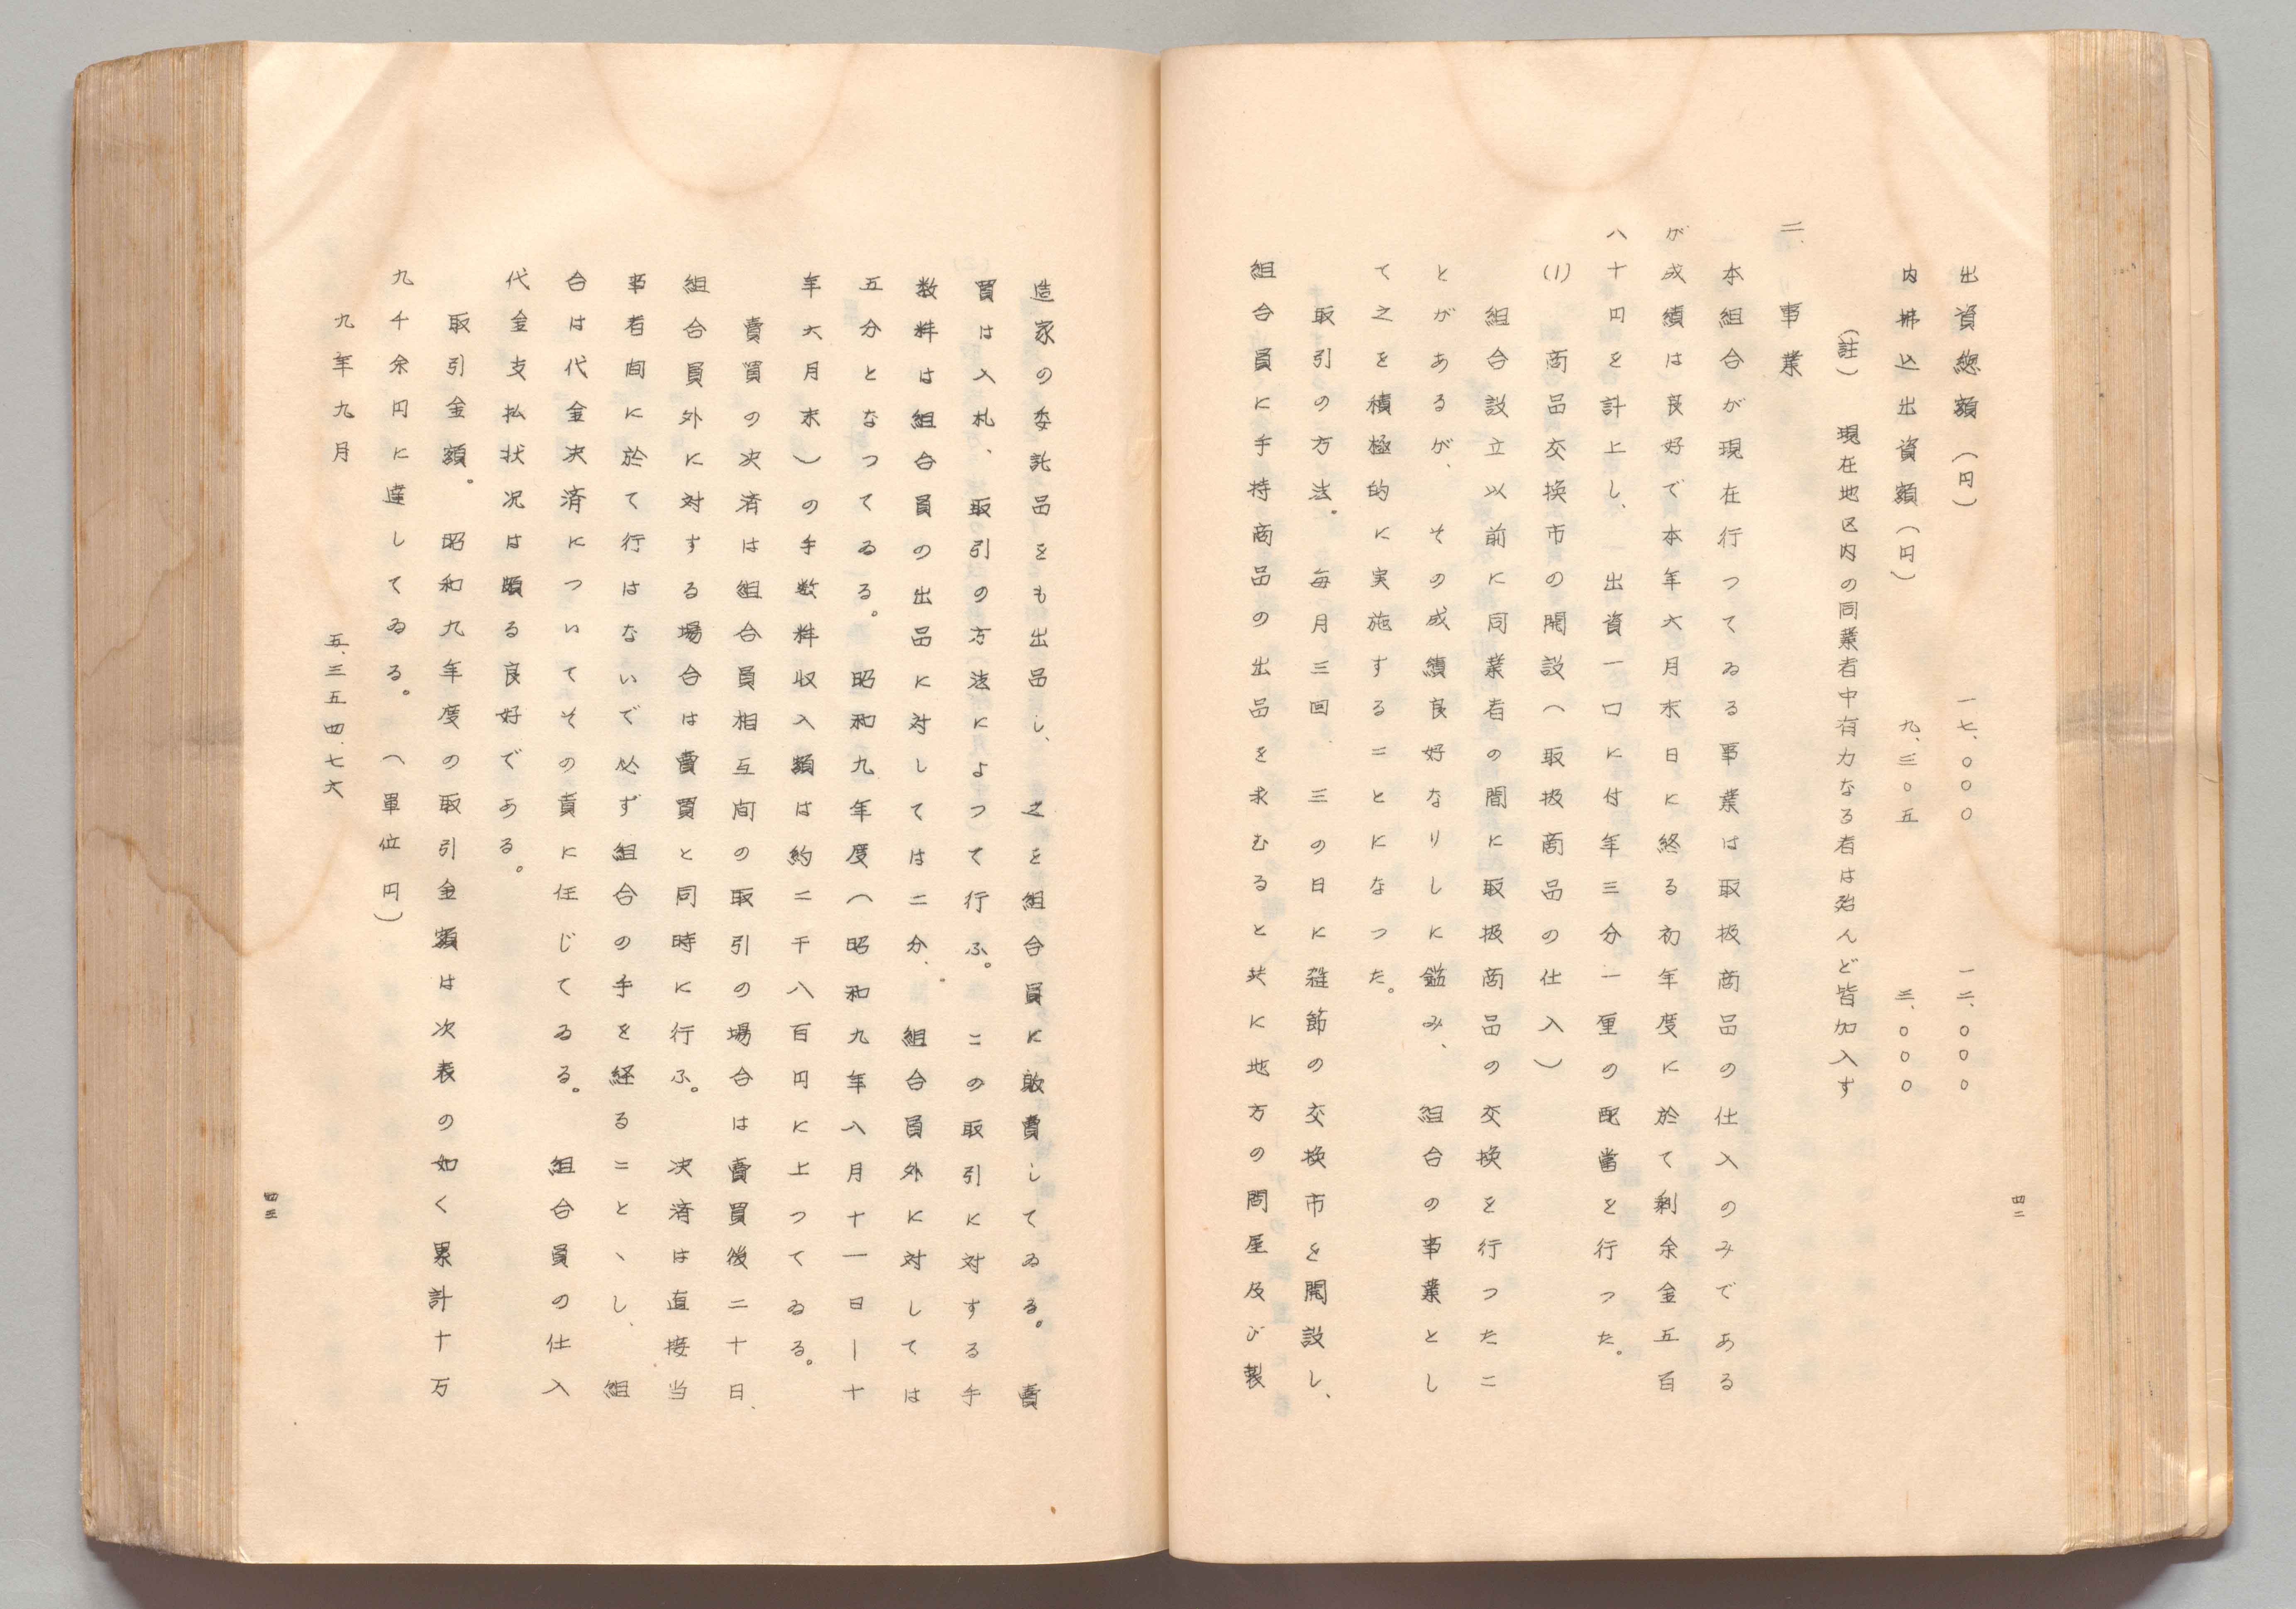 四二
出資總額（円）　一七、〇〇〇　一二、〇〇〇
内拂込出資額（円）　九、三〇五　三、〇〇〇
（註）　現在地区内の同業者中有力なる者は殆んど皆加入す
二、事業
本組合が現在行つてゐる事業は取扱商品の仕入のみである
が成績は良好で本年六月末日に終る初年度に於て剰余金五百
八十円を計上し、一出資一口に付年三分一厘の配當を行つた。
(1)　商品交換市の開設（取扱商品の仕入）
組合設立以前に同業者の間に取扱商品の交換を行つたこ
とがあるが、その成績良好なりしに鑑み、組合の事業とし
て之を積極的に実施することになつた。
取引の方法。毎月三回、三の日に雑節の交換市を開設し、
組合員に手持商品の出品を求むると共に地方の問屋及び製
造家の委託品をも出品し、之を組合員に敢賣してゐる。賣
買は入札、取引の方法によつて行ふ。この取引に対する手
数料は組合員の出品に対しては二分、組合員外に対しては
五分となつてゐる。昭和九年度（昭和九年八月十一日ー十
年六月末）の手数料収入額は約二千八百円に上つてゐる。
賣買の決済は組合員相互間の取引の場合は賣買後二十日、
組合員外に対する場合は賣買と同時に行ふ。決済は直接当
事者間に於て行はないで必ず組合の手を経ることゝし、組
合は代金決済についてその責に任じてゐる。組合員の仕入
代金支払状况は頗る良好である。
取引金額。昭和九年度の取引金額は次表の如く累計十万
九千余円に達してゐる。（單位円）
九年九月　五、三五四、七六
四三